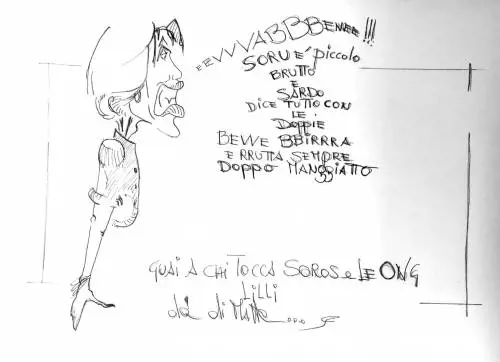 EEVVVABBBENEEE!!!
SORU E' piccolo
BRUTTO
E
SARDO
DICE TUTTO CON
LE
DOPPIE
BEVVE BBIRRRA
E RRUTTA SEMPRE
DOPPO MANGGIATTO
GUAI A CHI TOCCA SOROS e LE ONG
LILLI